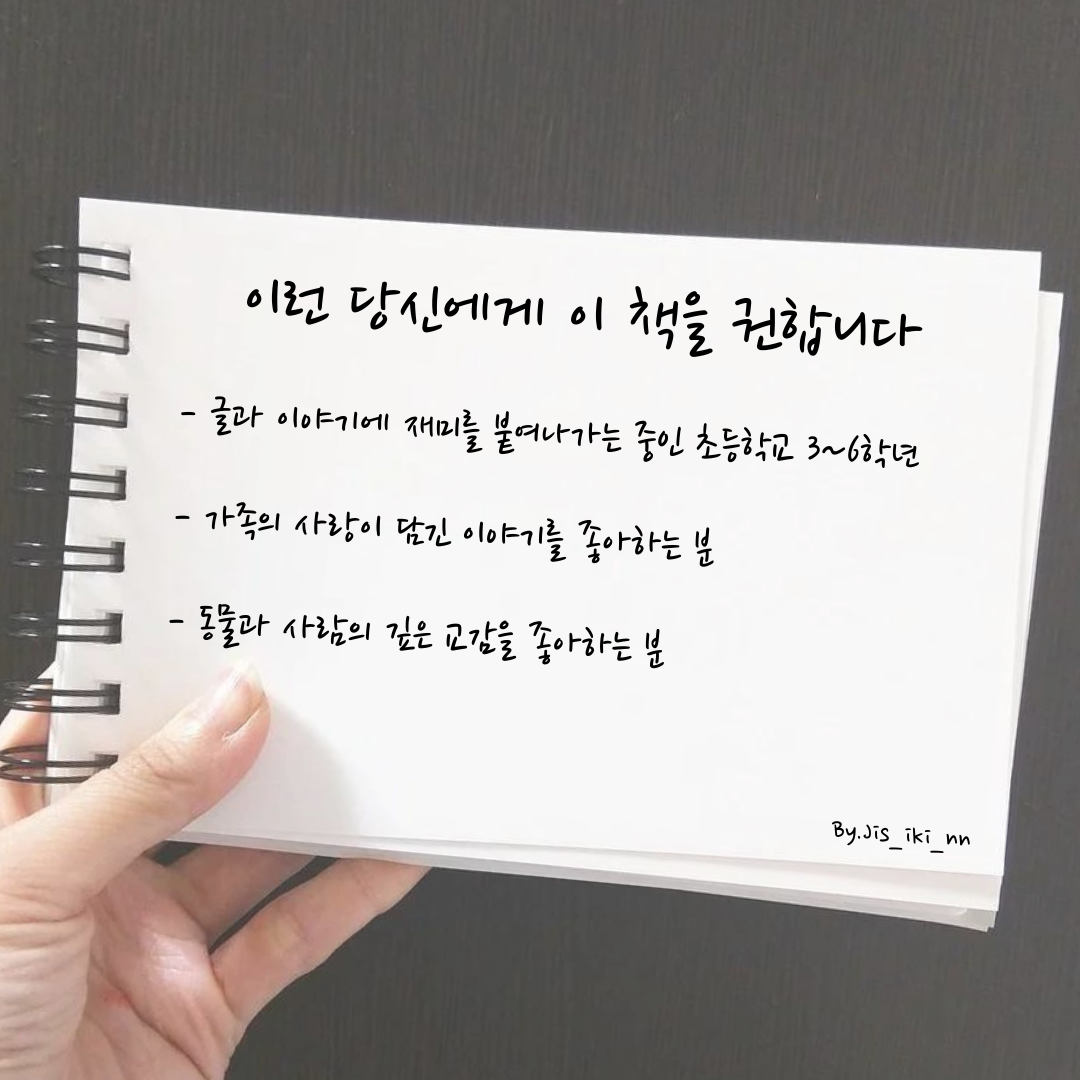 이런 당신에게 이 책을 권합니다
- 글과 이야기에 재미를 붙여나가는 중인 초등학교 3~6학년
- 가족의 사랑이 담긴 이야기를 좋아하는 분
- 동물과 사람의 깊은 교감을 좋아하는 분
By.Jis_iki_nn